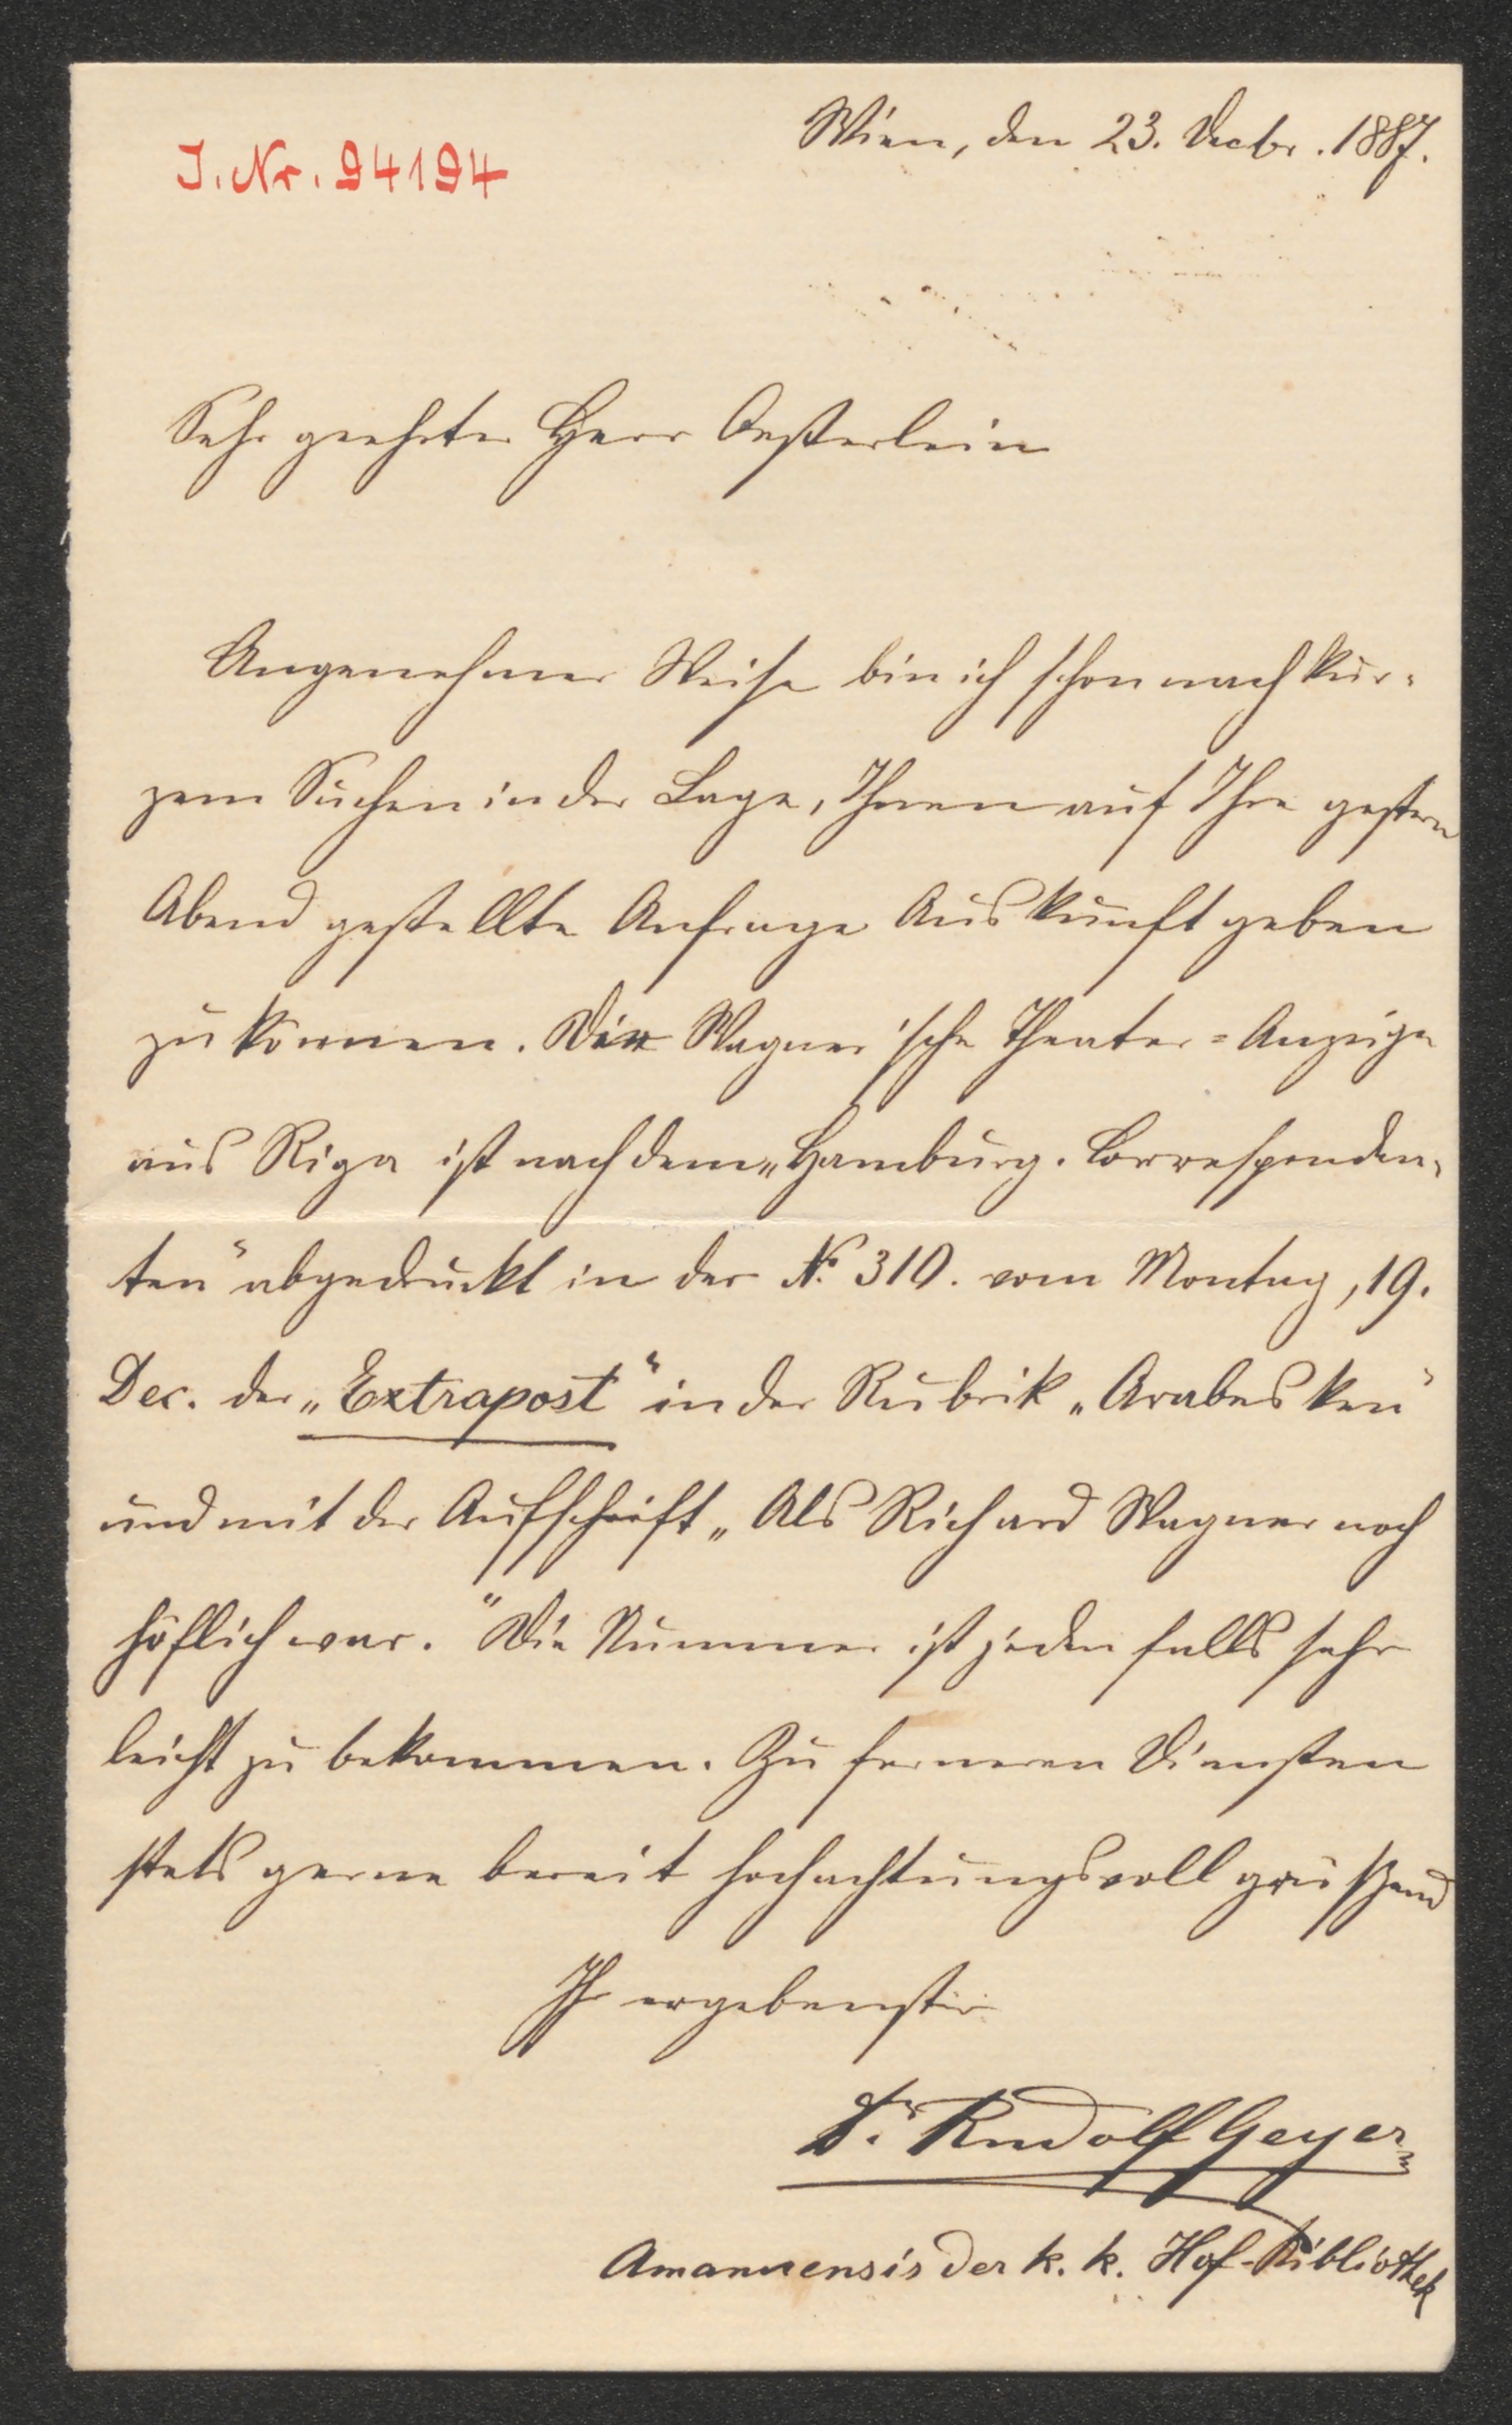 Wien, den 23. Decbr. 1887.
J. Nr. 94194
Sehr geehrter Herr Oesterlein
Angenehmer Weise bin ich schon nach kur-
zem Suchen in der Lage, Ihnen auf Ihre gestern
Abend gestellte Anfrage Auskunft geben
zu können. Die Wagner'sche Theater-Anzeige
aus Riga ist nach dem „Hamburg. Corresponden-
ten“ abgedruckt in der No. 310. vom Montag, 19.
Dec. der „Extrapost“ in der Rubrik „Arabesken“
und mit der Aufschrift „Als Richard Wagner noch
höflich war.“ Die Nummer ist jedenfalls sehr
leicht zu bekommen. Zu ferneren Diensten
stets gerne bereit hochachtungsvoll grüßend
Ihr ergebenster
Dr. Rudolf Geyer
Amanuensis der k. k. Hof-Bibliothek